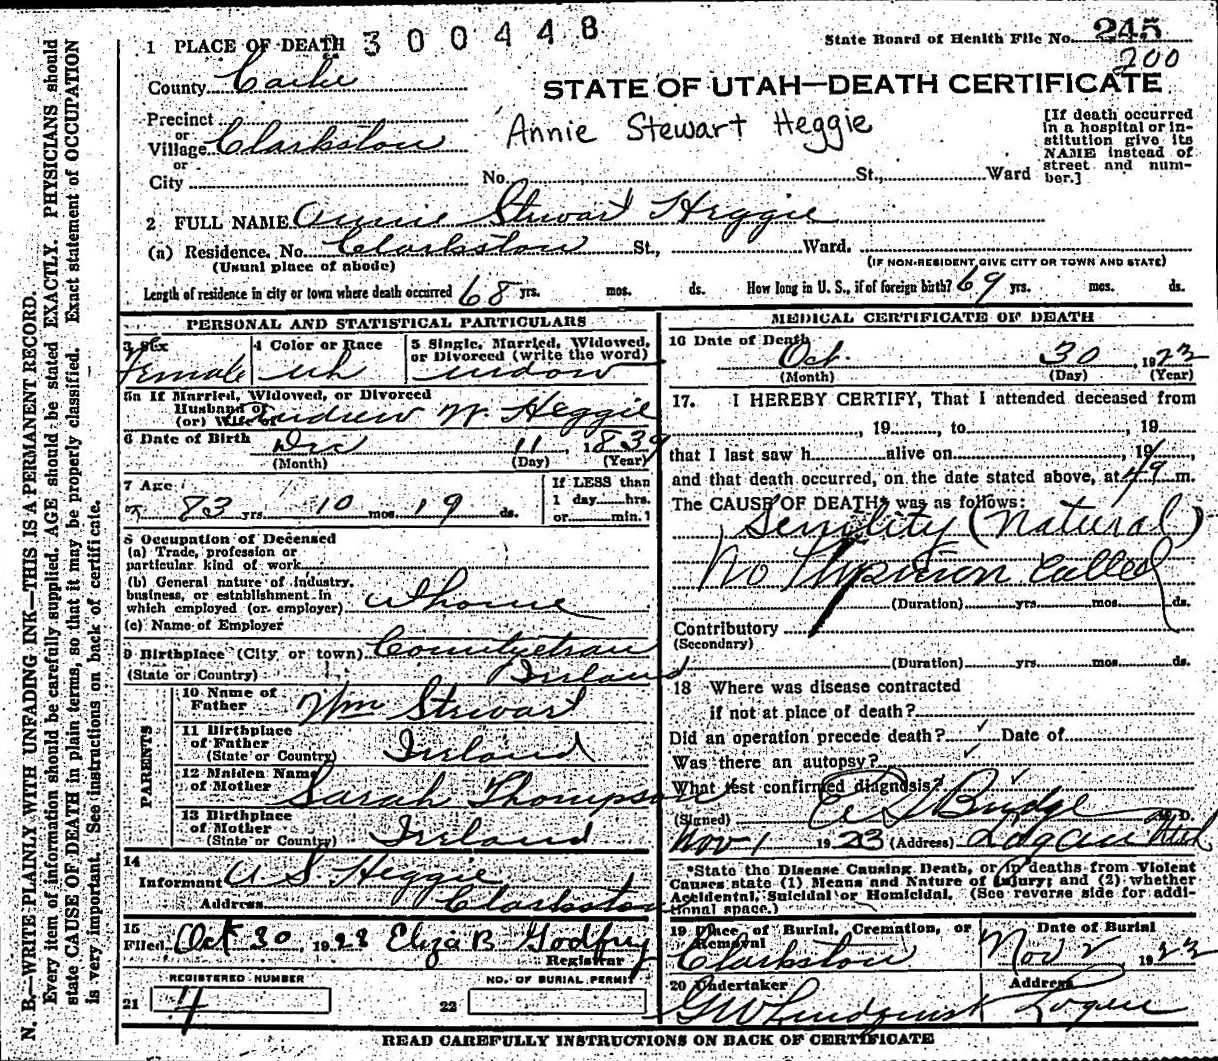 N. B.—WRITE PLAINLY WITH UNFADING INK—THIS IS A PERMANENT RECORD.
Every item of information should be carefully supplied. AGE should be stated EXACTLY. PHYSICIANS should
state CAUSE OF DEATH in plain terms, so that it may be properly classified. Exact statement of OCCUPATION
is very important. See instructions on back of certificate.
1 PLACE OF DEATH
2300448
State Board of Health File No. 245
200
County Cache
STATE OF UTAH—DEATH CERTIFICATE
Precinct
or
Village Clarkston
or
City
Annie Stewart Heggie
[If death occurred
in a hospital or in-
stitution give its
NAME instead of
street and num-
ber.]
No. St., Ward
2 FULL NAME Annie Stewart Heggie
(a) Residence. No. Clarkston St., Ward.
(Usual place of abode)
(IF NON-RESIDENT GIVE CITY OR TOWN AND STATE)
Length of residence in city or town where death occurred 68 yrs. mos. ds. How long in U. S., if of foreign birth? 69 yrs. mos. ds.
PERSONAL AND STATISTICAL PARTICULARS
3 Sex
Female
4 Color or Race
wh
5 Single, Married, Widowed,
or Divorced (write the word)
widow
5a If Married, Widowed, or Divorced
Husband of
(or) Wife of Andrew W. Heggie
6 Date of Birth Dec 11 1839
(Month) (Day) (Year)
7 Age
83 yrs. 10 mos. 19 ds.
If LESS than
1 day hrs.
or min.
8 Occupation of Deceased
(a) Trade, profession or
particular kind of work
(b) General nature of industry,
business, or establishment in
which employed (or employer) at home
(c) Name of Employer
9 Birthplace (City or town)
(State or Country) Ireland
PARENTS
10 Name of
Father Wm Stewart
11 Birthplace
of Father
(State or Country) Ireland
12 Maiden Name
of Mother Sarah Thompson
13 Birthplace
of Mother
(State or Country) Ireland
14
Informant A S Heggie
Address Clarkston
15
Filed Oct 30, 1923 Eliza B Godfrey
Registrar
REGISTERED NUMBER
21 4
NO. OF BURIAL PERMIT
22
MEDICAL CERTIFICATE OF DEATH
16 Date of Death
Oct. 30, 1923
(Month) (Day) (Year)
17. I HEREBY CERTIFY, That I attended deceased from
, 19 , to , 19
that I last saw h alive on , 19 ,
and that death occurred, on the date stated above, at m.
The CAUSE OF DEATH* was as follows:
Senility (Natural)
No Physician Called
(Duration) yrs. mos. ds.
Contributory
(Secondary)
(Duration) yrs. mos. ds.
18 Where was disease contracted
if not at place of death?
Did an operation precede death? Date of
Was there an autopsy?
What test confirmed diagnosis?
(Signed) Budge M. D.
Nov 1 1923 (Address) Logan Utah
*State the Disease Causing Death, or in deaths from Violent
Causes state (1) Means and Nature of Injury; and (2) whether
Accidental, Suicidal or Homicidal. (See reverse side for addi-
tional space.)
19 Place of Burial, Cremation, or
Removal
Clarkston
Date of Burial
Nov 2, 1923
20 Undertaker
G W Lindquist
Address
Logan
READ CAREFULLY INSTRUCTIONS ON BACK OF CERTIFICATE